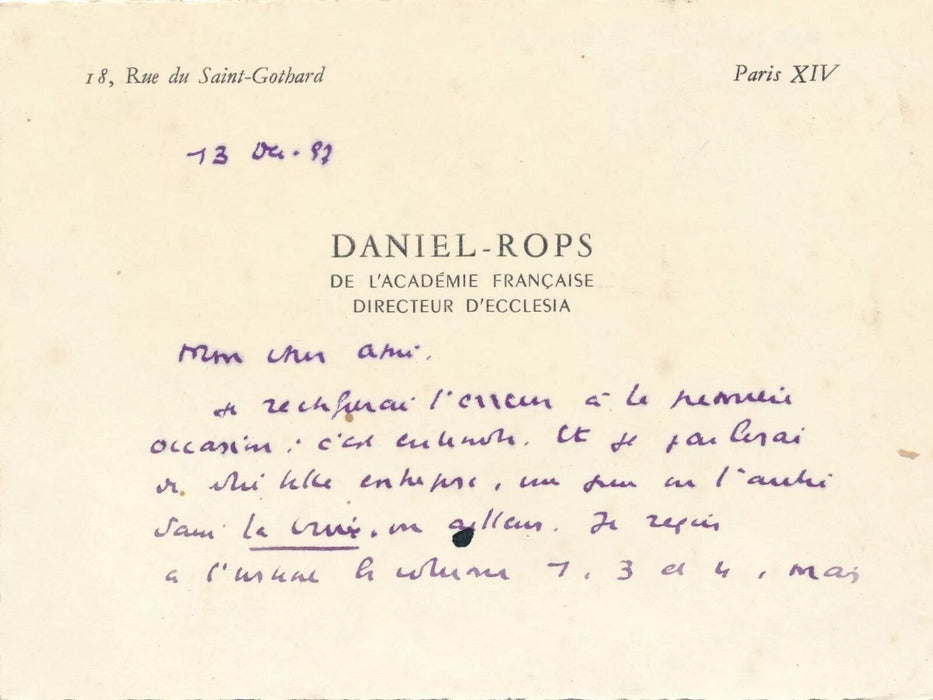 18, Rue du Saint-Gothard
Paris XIV
13 Dec. 57
DANIEL-ROPS
DE L'ACADÉMIE FRANÇAISE
DIRECTEUR D'ECCLESIA
Mon cher ami.
Je rectifierai l'erreur à la première
occasion : c'est entendu. Et je parlerai
de votre belle entreprise, un jour ou l'autre
dans la croix, ou ailleurs. Je reçois
à l'instant le volume 1, 3 et 4, mais